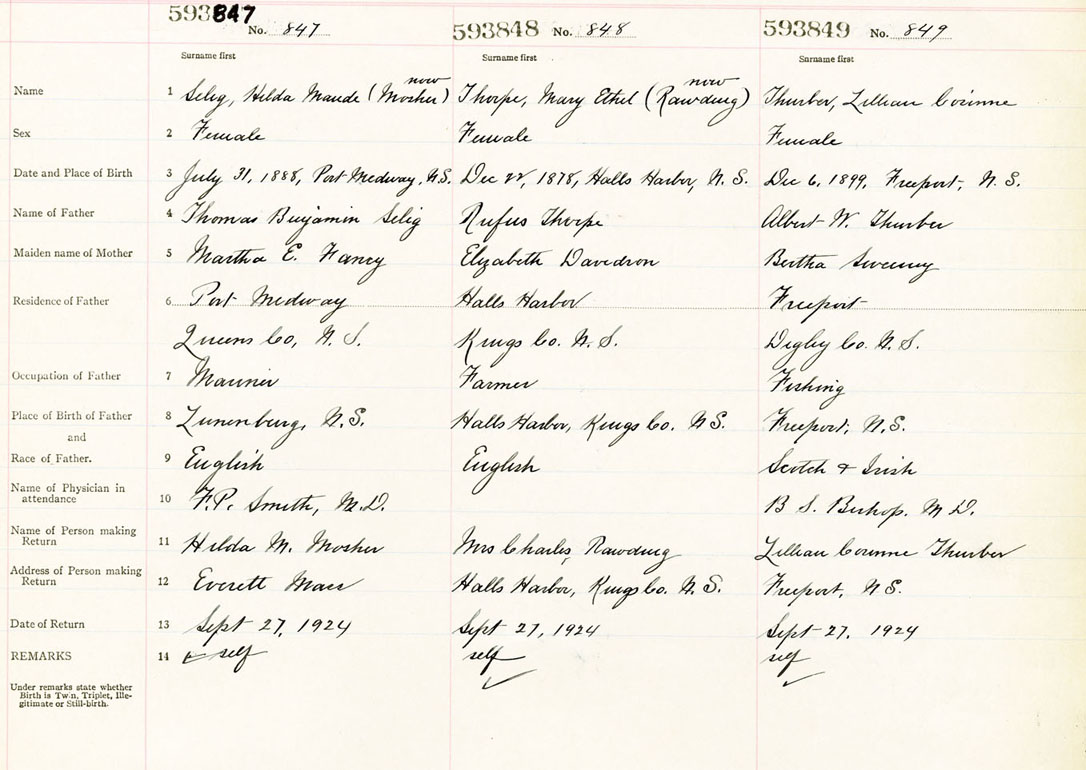 593847 No. 847 593848 No. 848 593849 No. 849
Surname first Surname first Surname first
now now
Name 1 Selig, Hilda Maude (Mosher) Thorpe, Mary Ethel (Rawding) Thurber, Lillian Corinne
Sex 2 Female Female Female
Date and Place of Birth 3 July 31, 1888, Port Medway, N.S. Dec 22, 1878, Halls Harbor, N.S. Dec 6, 1899, Freeport, N.S.
Name of Father 4 Thomas Benjamin Selig Rufus Thorpe Albert W. Thurber
Maiden name of Mother 5 Martha E. Fancy Elizabeth Davidson Bertha Sweeney
Residence of Father 6 Port Medway Halls Harbor Freeport
Queens Co, N.S. Kings Co. N.S. Digby Co. N.S.
Occupation of Father 7 Mariner Farmer Fishing
Place of Birth of Father 8 Lunenburg, N.S. Halls Harbor, Kings Co. NS Freeport, N.S.
and
Race of Father. 9 English English Scotch & Irish
Name of Physician in
attendance 10 F.P. Smith, M.D. B S. Bishop. M D.
Name of Person making
Return 11 Hilda M. Mosher Mrs Charles Rawding Lillian Corinne Thurber
Address of Person making
Return 12 Everett Mass Halls Harbor, Kings Co. N.S. Freeport, N.S.
Date of Return 13 Sept 27, 1924 Sept 27, 1924 Sept 27, 1924
REMARKS 14 self self self
Under remarks state whether
Birth is Twin, Triplet, Ille-
gitimate or Still-birth.